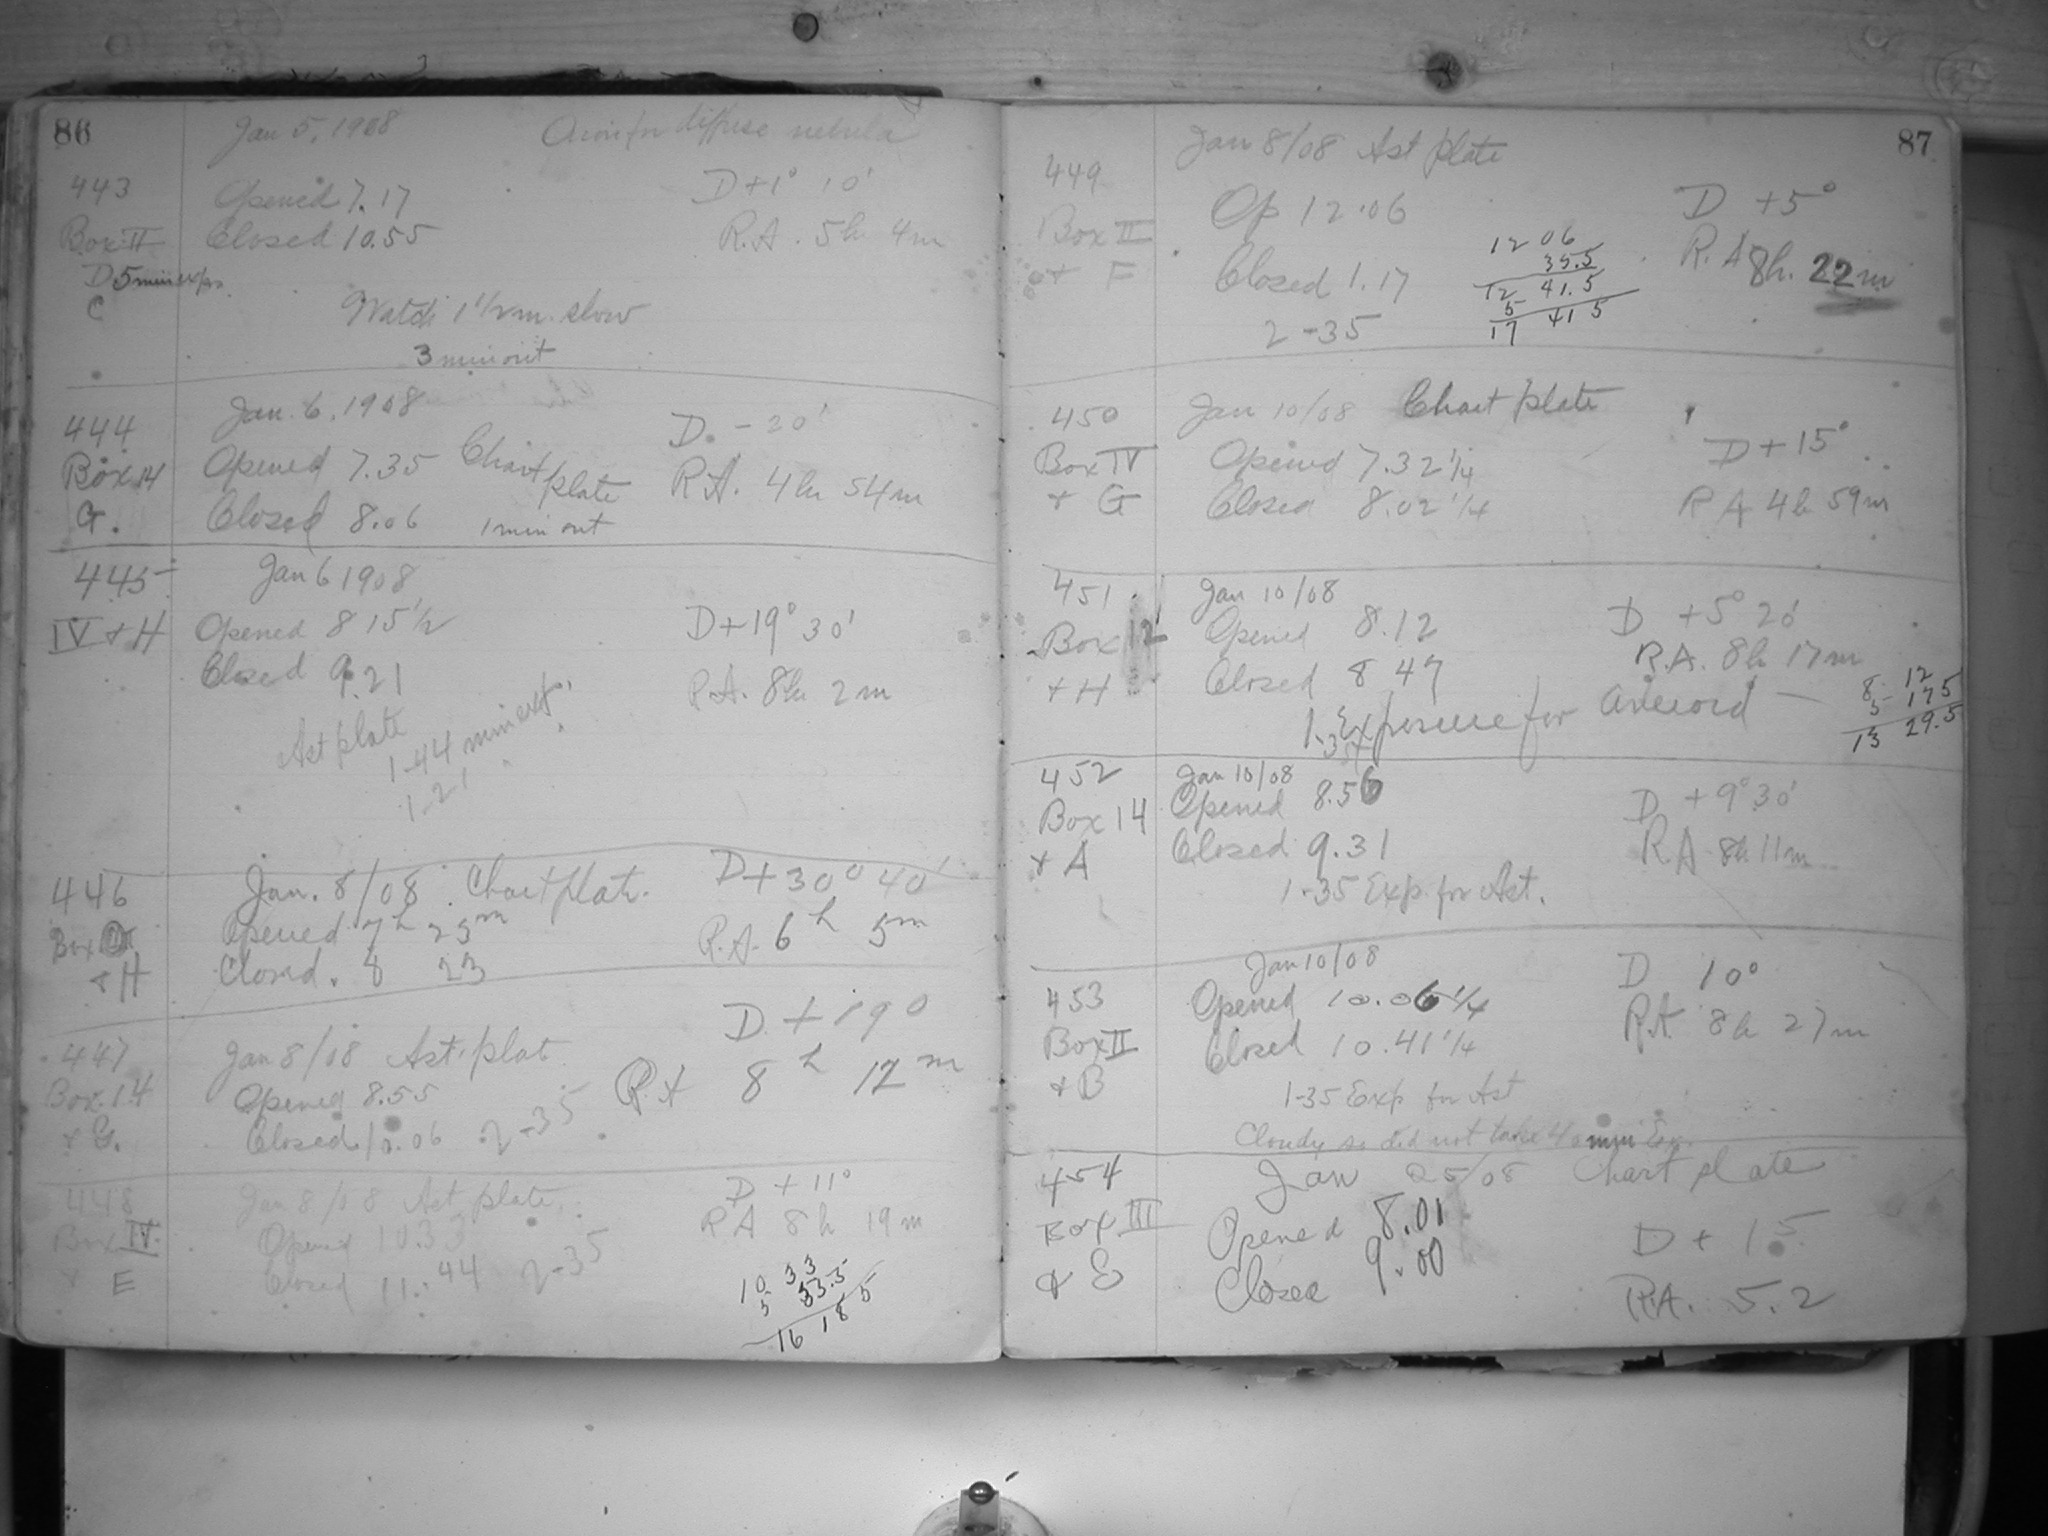 86
Jan 5, 1908 diffuse nebula
443
Opened 7.17 D+1° 10'
Box II Closed 10.55 R.A. 5h 4m
D 5 min exp
C
Watch 1 1/2 m. slow
3 min out
Jan. 6, 1908
444 D. -20'
Box 14 Opened 7.35 Chart plate R.A. 4h 54m
G. Closed 8.06 1 min out
445 Jan 6 1908
IV + H Opened 8 15 1/2 D+19° 30'
Closed 9.21 R.A. 8h 2m
Ast plate
1-44 min ext
1-21
446 Jan. 8/08 Chart plate. D+30° 40'
Box Opened 7h 23m R.A. 6h 5m
+ H Closed. 8 23
447 Jan 8/08 Ast. plat D. +19°
Box 14 Opened 8.55 RA 8h 12m
+ G. Closed 10.06 2-35
448 Jan 8/08 Ast plate. D +11°
Box IV. Opened 10.33 RA 8h 19m
+ E Closed 11.44 2-35
10 33
5 33.5
16 18 5
87
Jan 8/08 Ast plate
449
Op 12.06 D +5°
Box II R.A 8h. 22m
+ F Closed 1.17
2-35
12 06
35.5
12 41.5
5
17 41 5
450 Jan 10/08 Chart plate
Box IV Opened 7.32 1/4 D+15°
+ G Closed 8.02 1/4 RA 4h 59m
451 Jan 10/08
Box 12 Opened 8.12 D +5° 20'
+ H Closed 8 47 R.A. 8h 17m
1-35 Exposure for
8 12
5 17 5
13 29.5
452 Jan 10/08
Box 14 Opened 8.56 D +9° 30'
+ A Closed 9.31 RA 8h 11m
1-35 Exp. for Ast.
Jan 10/08
453 Opened 10.06 1/4 D 10°
Box II Closed 10.41 1/4 RA 8h 27m
+ B
1-35 Exp for Ast
Cloudy so did not take 40 min Ex.
454 Jan 25/08 Chart plate
Box III Opened 8.01 D + 15
+ E Closed 9.00 RA. 5.2